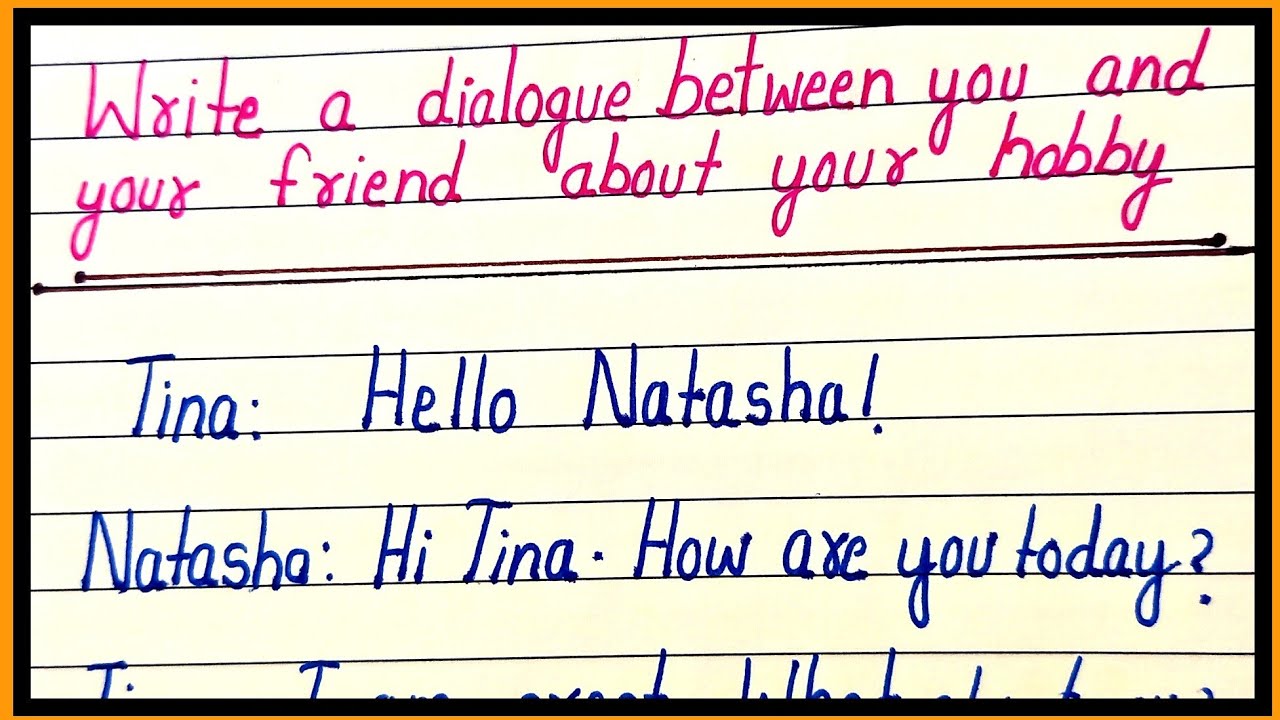 Write a dialogue between you and
your friend about your hobby
Tina: Hello Natasha!
Natasha: Hi Tina. How are you today?